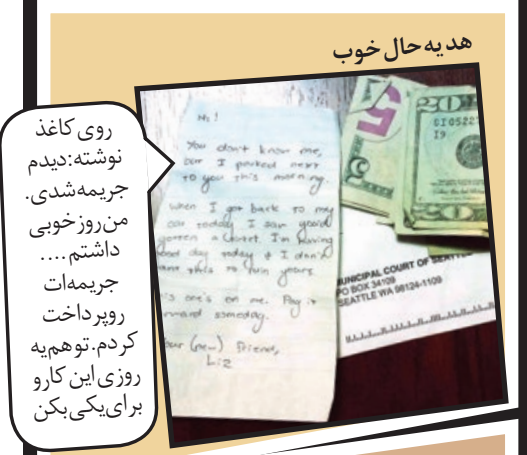 هدیه حال خوب
روی کاغذ
نوشته:دیدم
جریمه‌شدی.
من‌روزخوبی
داشتم....
جریمه‌ات
روپرداخت
کردم.توهم‌یه
روزی این کارو
برای‌یکی‌بکن
Hi!
You don't know me,
but I parked next
to you this morning.
When I got back to my
car today I saw you'd
gotten a ticket. I'm having
good day today & I don't
want this to ruin yours
's one's on me. Pay it
forward someday.
Your (new) friend,
Liz
5
20
MUNICIPAL COURT OF SEATTLE
PO BOX 34109
SEATTLE WA 98124-1109